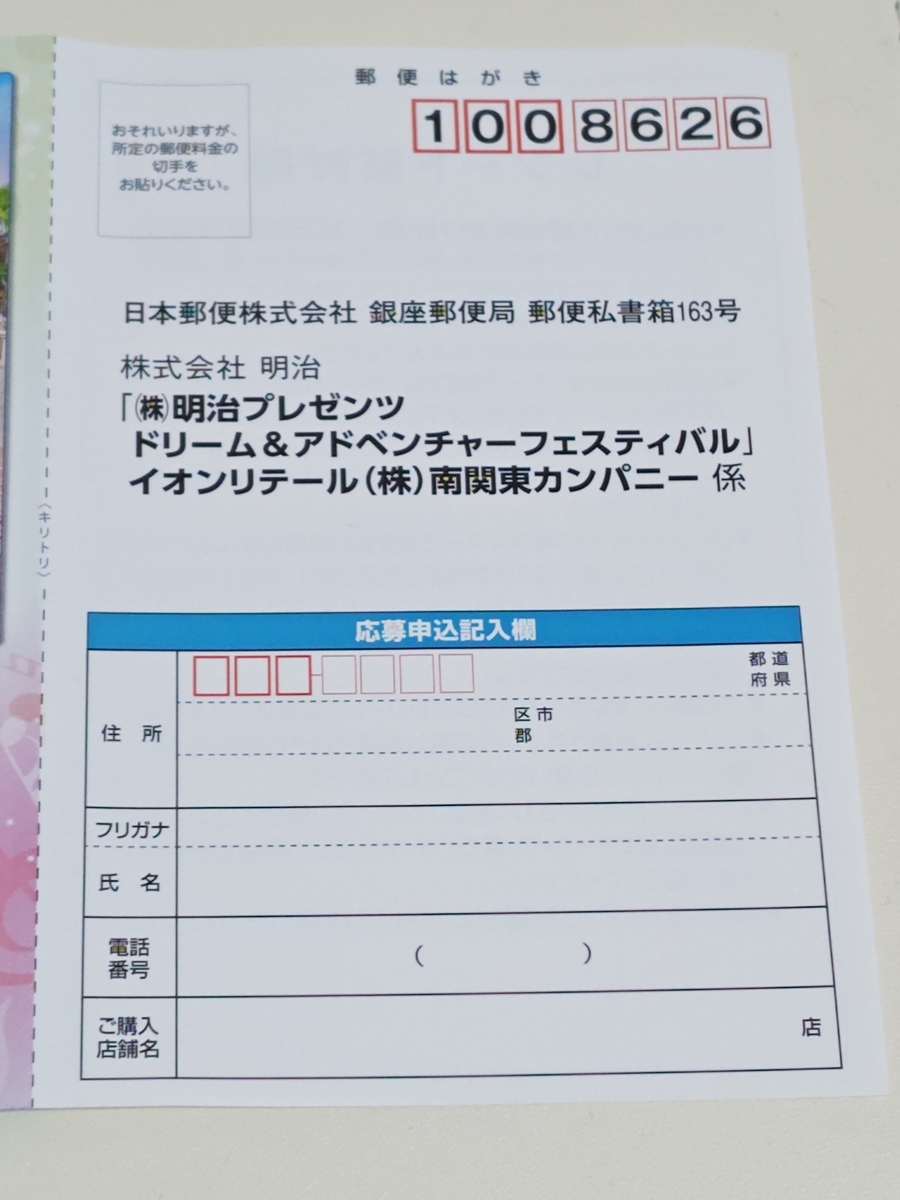 郵便はがき
1008626
おそれいりますが、
所定の郵便料金の
切手を
お貼りください。
日本郵便株式会社 銀座郵便局 郵便私書箱163号
株式会社 明治
「㈱明治プレゼンツ
ドリーム&アドベンチャーフェスティバル」
イオンリテール(株)南関東カンパニー 係
〈キリトリ〉
応募申込記入欄
住所
都道
府県
区市
郡
フリガナ
氏名
電話
番号
( )
ご購入
店舗名
店